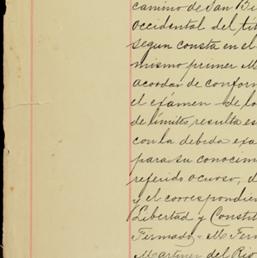 camino de San Bi
occidental del tit
segun consta en el
mismo primer M
acordar de conform
el exámen de lo
de límites, resulta es
con la debida exa
para su conocim
referido ocurso, d
y el correspondien
Libertad y Constit
Firmado - M. Fern
Martinez del Rio